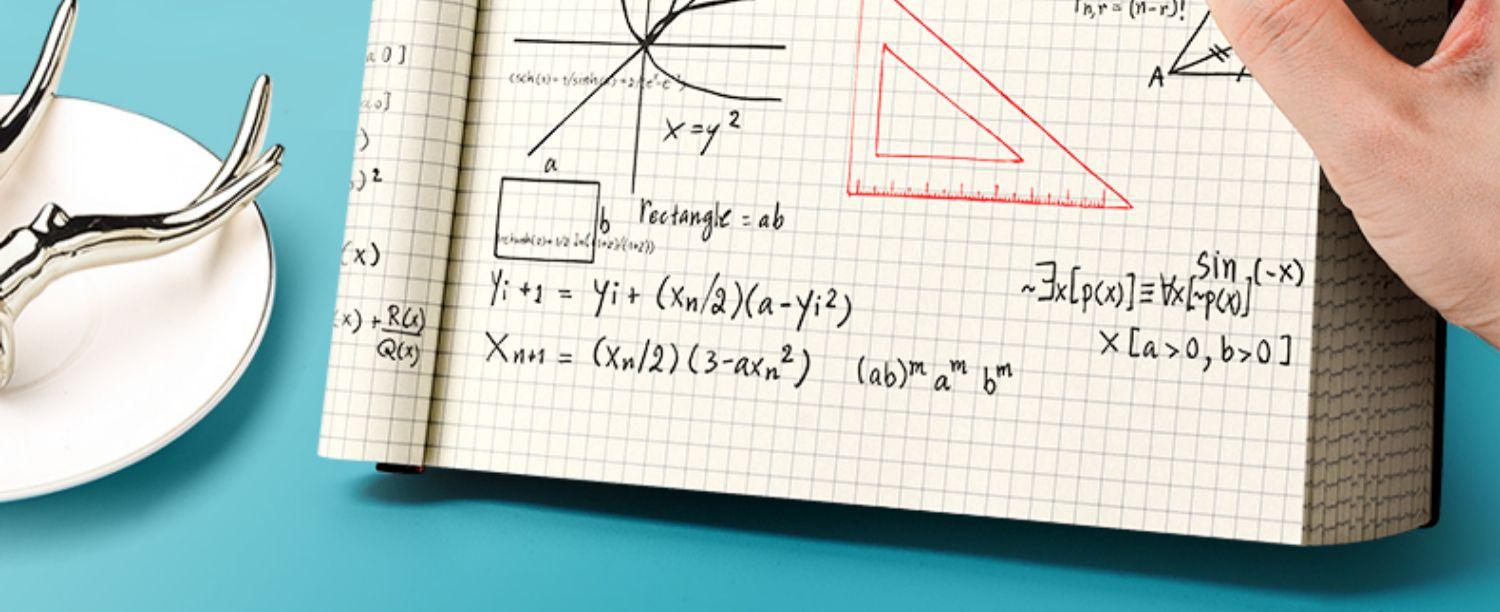 a 0 ]
ao]
)
)²
(x)
(x) + R(x)
Q(x)
n,r = (n-r)!
A
x = y²
a
b
rectangle = ab
yi +1 = yi + (xn/2)(a - yi²)
Xn+1 = (xn/2)(3 - axn²)
(ab)ᵐ aᵐ bᵐ
sin (-x)
~∃x[p(x)] ≡ ∀x[~p(x)]
x [a > 0, b > 0]